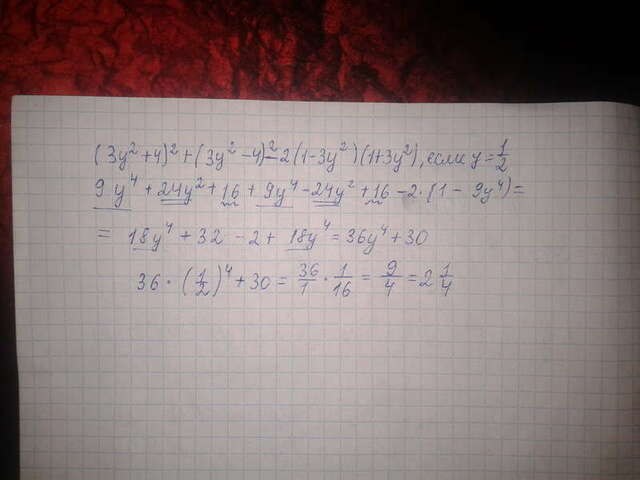 (3y²+4)²+(3y²-4)²-2(1-3y²)(1+3y²), если y=1/2
9y⁴+24y²+16+9y⁴-24y²+16-2·(1-9y⁴)=
= 18y⁴+32-2+18y⁴=36y⁴+30
36·(1/2)⁴+30=36/1·1/16=9/4=2 1/4